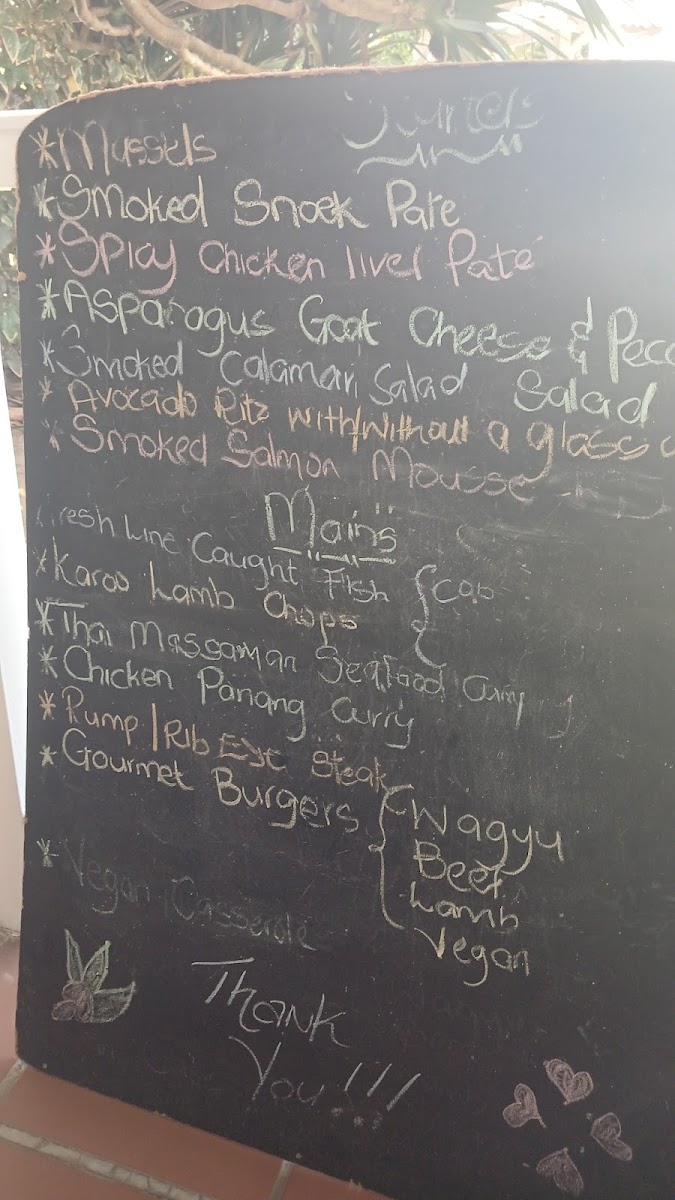 *Mussels
*Smoked Snoek Pate
*Spicy Chicken liver Paté
*Asparagus Goat Cheese &
Salad
*Smoked Calamari Salad
*Avocado Ritz with/without a glass
*Smoked Salmon Mousse
Mains
Fresh Line Caught Fish { Cob
*Karoo Lamb Chops
*Thai Massaman Seafood Curry
*Chicken Panang Curry
*Rump/Rib Eye Steak
*Gourmet Burgers { Wagyu
Beef
Lamb
Vegan
*Vegan Casserole
Thank
You!!!